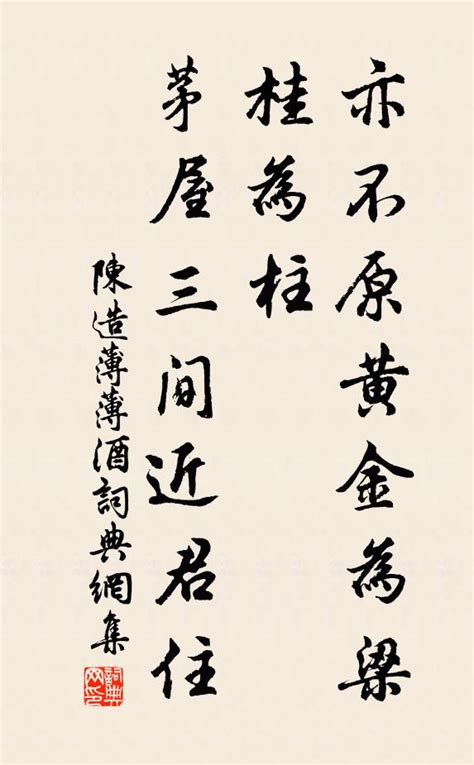 亦不原黄金為梁
桂為柱
茅屋三间近君住
陳造薄薄酒詞典網集
詞典網印